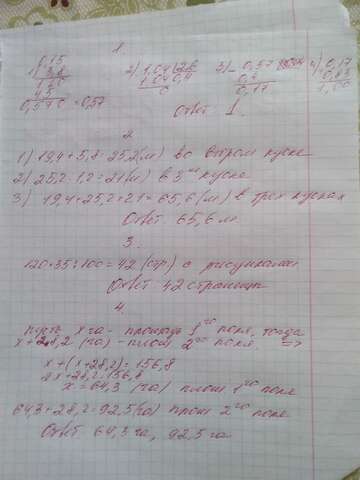 1
0,15
1) 3,8
120
45
0,570 = 0,57
2) 1,04 2,6
1,04 0,4
0
3) 0,57
0,4
0,17
4) 0,17
0,83
1,00
Ответ 1.
2
1) 19,4+5,8=25,2(м) во втором куске
2) 25,2:1,2=21(м) в 3ем куске
3) 19,4+25,2+21=65,6(м) в трех кусках
Ответ: 65,6 м
3.
120·35:100=42 (стр) с рисунками
Ответ: 42 страницы
4.
Пусть х га - площадь 1го поля, тогда
х+28,2 (га) - площ 2го поля. =>
х+(х+28,2)=156,8
2х+28,2=156,8
х=64,3 (га) площ 1го поля
64,3+28,2=92,5(га) площ 2го поля
Ответ: 64,3 га, 92,5 га